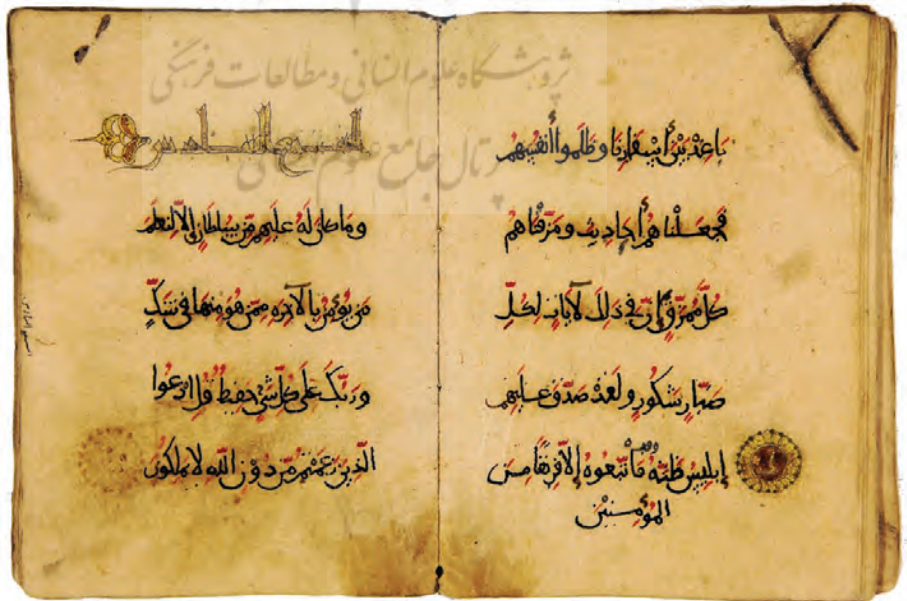 پژوهشگاه علوم انسانی و مطالعات فرهنگی
پرتال جامع علوم انسانی
بَاعِدْ بَيْنَ أَسْفَارِنَا وَظَلَمُوا أَنْفُسَهُمْ
فَجَعَلْنَاهُمْ أَحَادِيثَ وَمَزَّقْنَاهُمْ
كُلَّ مُمَزَّقٍ إِنَّ فِي ذَلِكَ لَآيَاتٍ لِكُلِّ
صَبَّارٍ شَكُورٍ وَلَقَدْ صَدَّقَ عَلَيْهِمْ
إِبْلِيسُ ظَنَّهُ فَاتَّبَعُوهُ إِلَّا فَرِيقًا مِنَ
الْمُؤْمِنِينَ
وَمَا كَانَ لَهُ عَلَيْهِمْ مِنْ سُلْطَانٍ إِلَّا لِنَعْلَمَ
مَنْ يُؤْمِنُ بِالْآخِرَةِ مِمَّنْ هُوَ مِنْهَا فِي شَكٍّ
وَرَبُّكَ عَلَى كُلِّ شَيْءٍ حَفِيظٌ قُلِ ادْعُوا
الَّذِينَ زَعَمْتُمْ مِنْ دُونِ اللَّهِ لَا يَمْلِكُونَ